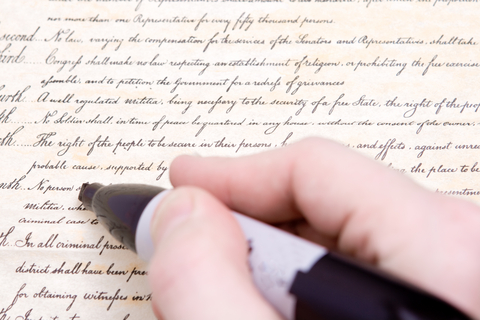 nor more than one Representative for every fifty thousand persons.
second... No law, varying the compensation for the services of the Senators and Representatives, shall take
hird... Congress shall make no law respecting an establishment of religion, or prohibiting the free exercise
assemble, and to petition the Government for a redress of grievances
urth. A well regulated Militia, being necessary to the security of a free State, the right of the peop
th. No Soldier shall, in time of peace be quartered in any house, without the consent of the owner,
th... The right of the people to be secure in their persons, and effects, against unrea
probable cause, supported by the place to be
nth. No person
Militia, wh
criminal case to
th. In all criminal prose
district shall have been pre
for obtaining witnesses in